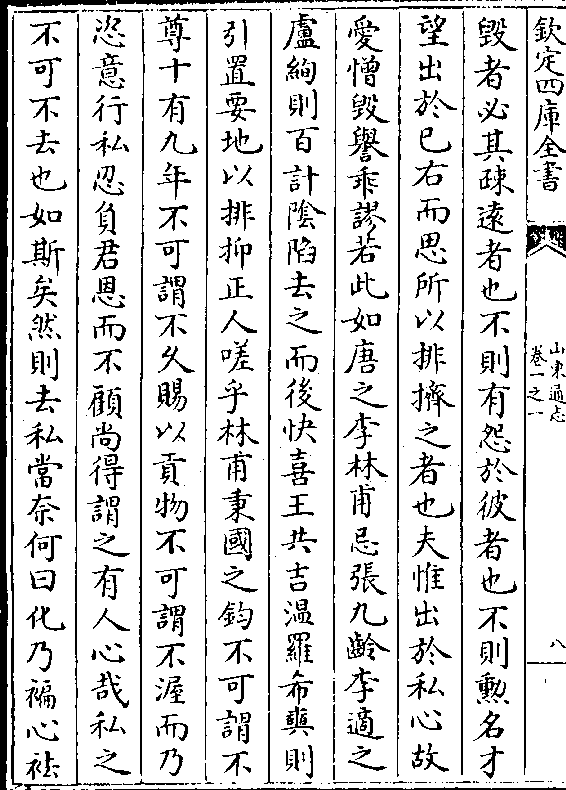 欽定四庫全書
山東通志
卷一之一
八
毀者必其疎遠者也不則有怨於彼者也不則勲名才
望出於已右而思所以排擠之者也夫惟出於私心故
愛憎毀譽乖謬若此如唐之李林甫忌張九齡李適之
盧絢則百計隂䧟去之而後快喜王共吉温羅希奭則
引置要地以排抑正人嗟乎林甫秉國之鈞不可謂不
尊十有九年不可謂不乆賜以貢物不可謂不渥而乃
恣意行私忍負君恩而不顧尚得謂之有人心哉私之
不可不去也如斯矣然則去私當奈何曰化乃褊心袪